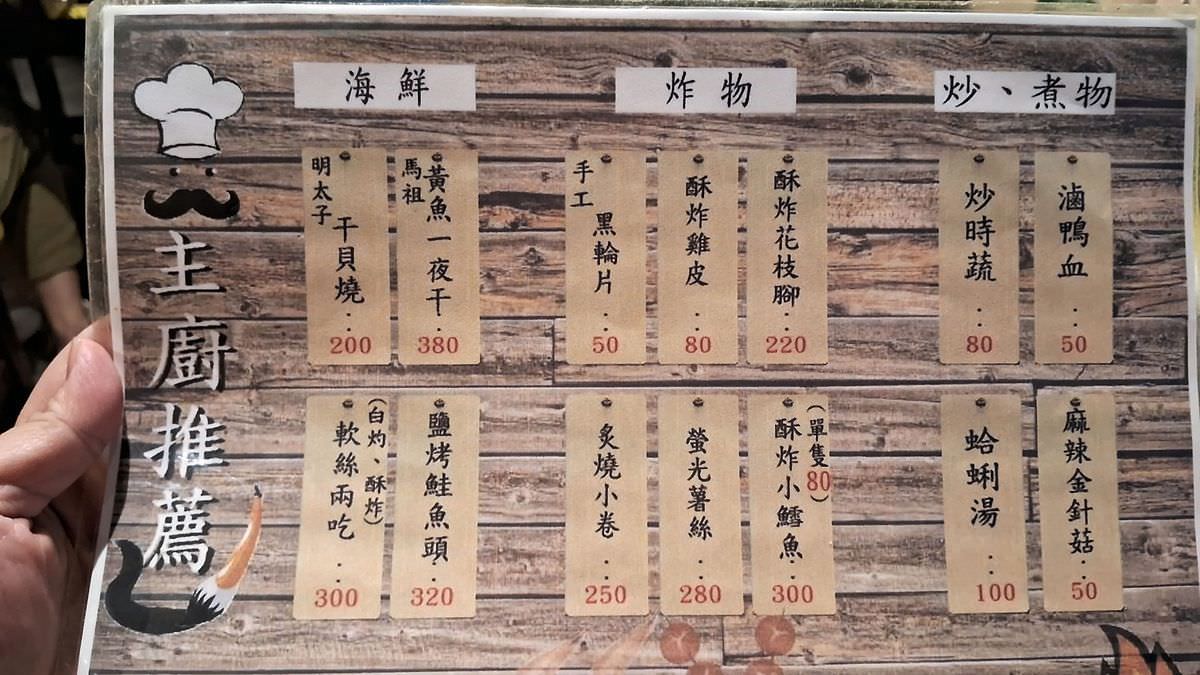 主廚推薦
海鮮
馬祖
黃魚一夜干..380
明太子
干貝燒..200
鹽烤鮭魚頭..320
(白灼、酥炸)
軟絲兩吃..300
炸物
酥炸花枝腳..220
酥炸雞皮..80
手工
黑輪片..50
(單隻80)
酥炸小鱈魚..300
螢光薯絲..280
炙燒小卷..250
炒、煮物
滷鴨血..50
炒時蔬..80
麻辣金針菇..50
蛤蜊湯..100